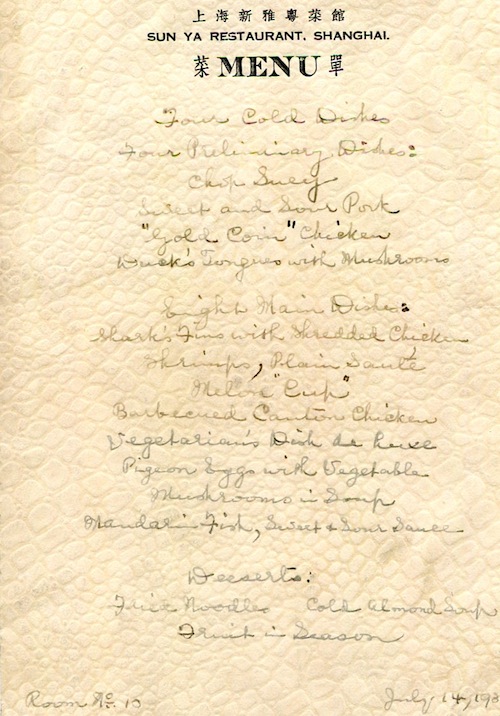 上海新雅粵菜館
SUN YA RESTAURANT, SHANGHAI.
菜 MENU 單
Four Cold Dishes
Four Preliminary Dishes:
Chop Suey
Sweet and Sour Pork
"Gold Coin" Chicken
Duck's Tongues with Mushrooms
Eight Main Dishes:
Shark's Fins with Shredded Chicken
Shrimps, Plain Sauté
Melon "Cup"
Barbecued Canton Chicken
Vegetarian's Dish de Luxe
Pigeon Eggs with Vegetable
Mushrooms in Soup
Mandarin Fish, Sweet & Sour Sauce
Desserts:
Fried Noodles Cold Almond Soup
Fruit in Season
Room No. 10 July 14, 193